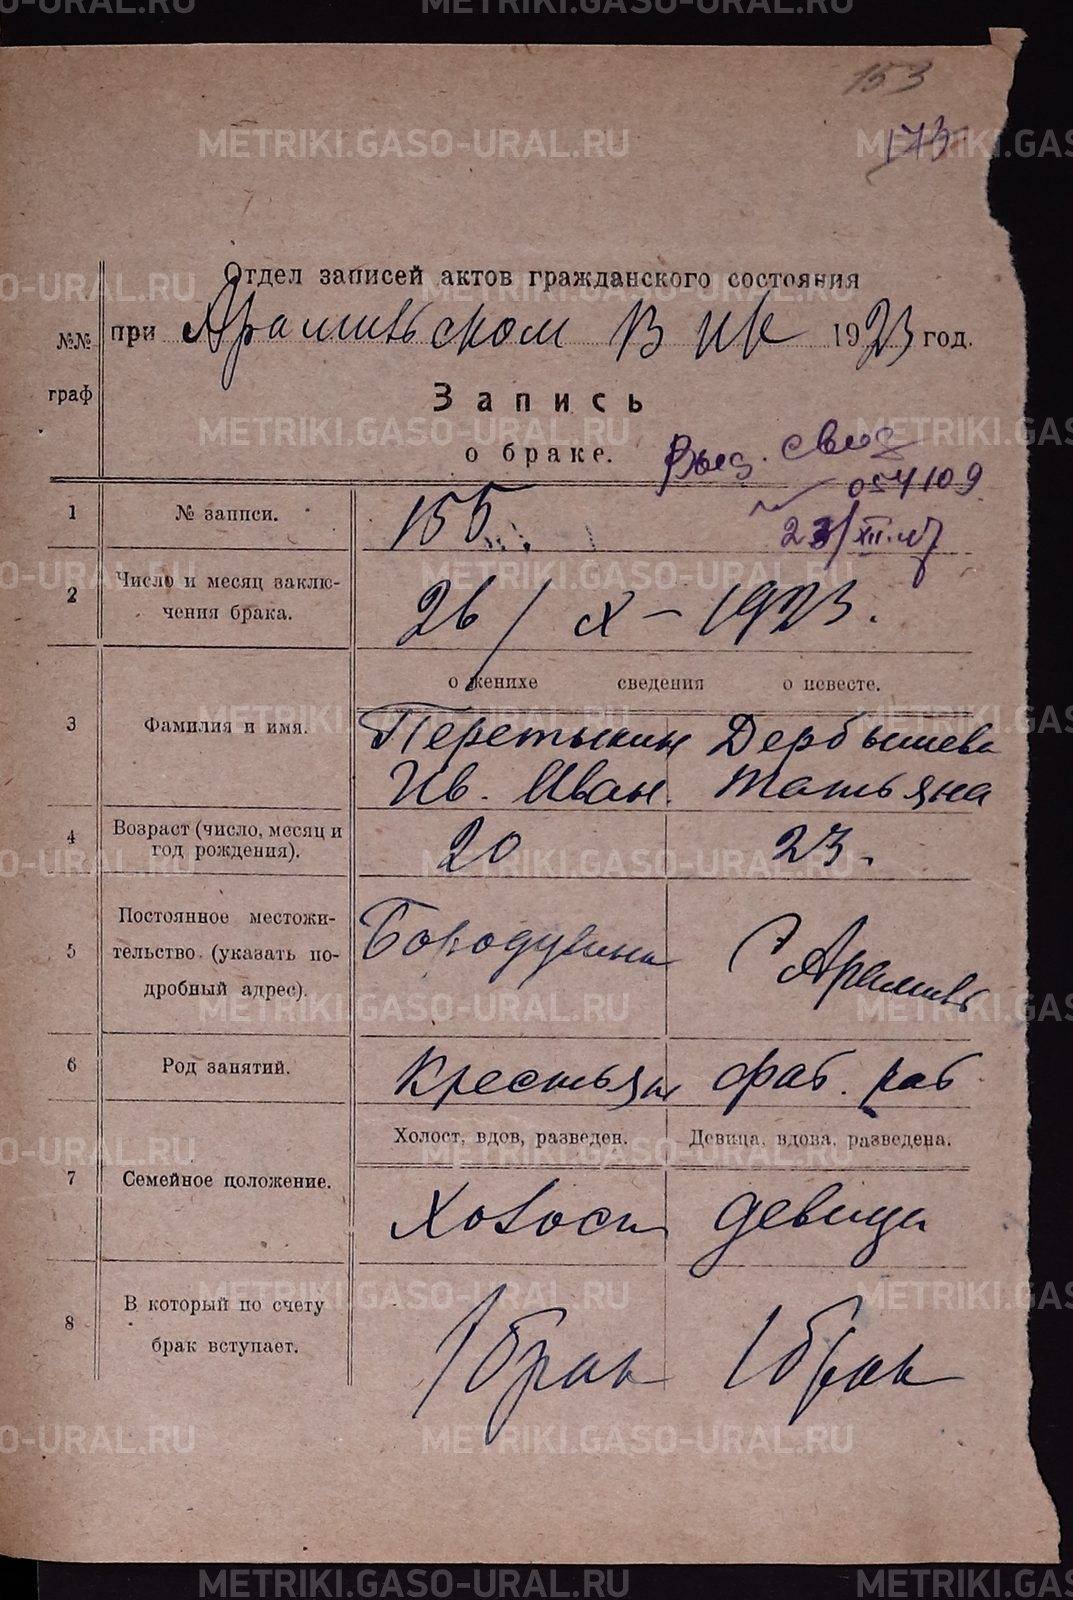 153
173
Отдел записей актов гражданского состояния
№№ граф
при Арамильском ВИК 1923 год.
Запись
о браке.
Выд. свид
054109
23/XII.47
1 № записи. 155
2 Число и месяц заключения брака. 26/X – 1923.
о женихе сведения о невесте.
3 Фамилия и имя. Перетыкин Дербышева
Ив. Иван. Татьяна
4 Возраст (число, месяц и год рождения). 20 23.
5 Постоянное местожительство (указать подробный адрес). С Арамиль
6 Род занятий. Крестьян фаб. раб.
Холост, вдов, разведен. Девица, вдова, разведена.
7 Семейное положение. Холост девица
8 В который по счету брак вступает. 1 брак 1 брак
METRIKI.GASO-URAL.RU